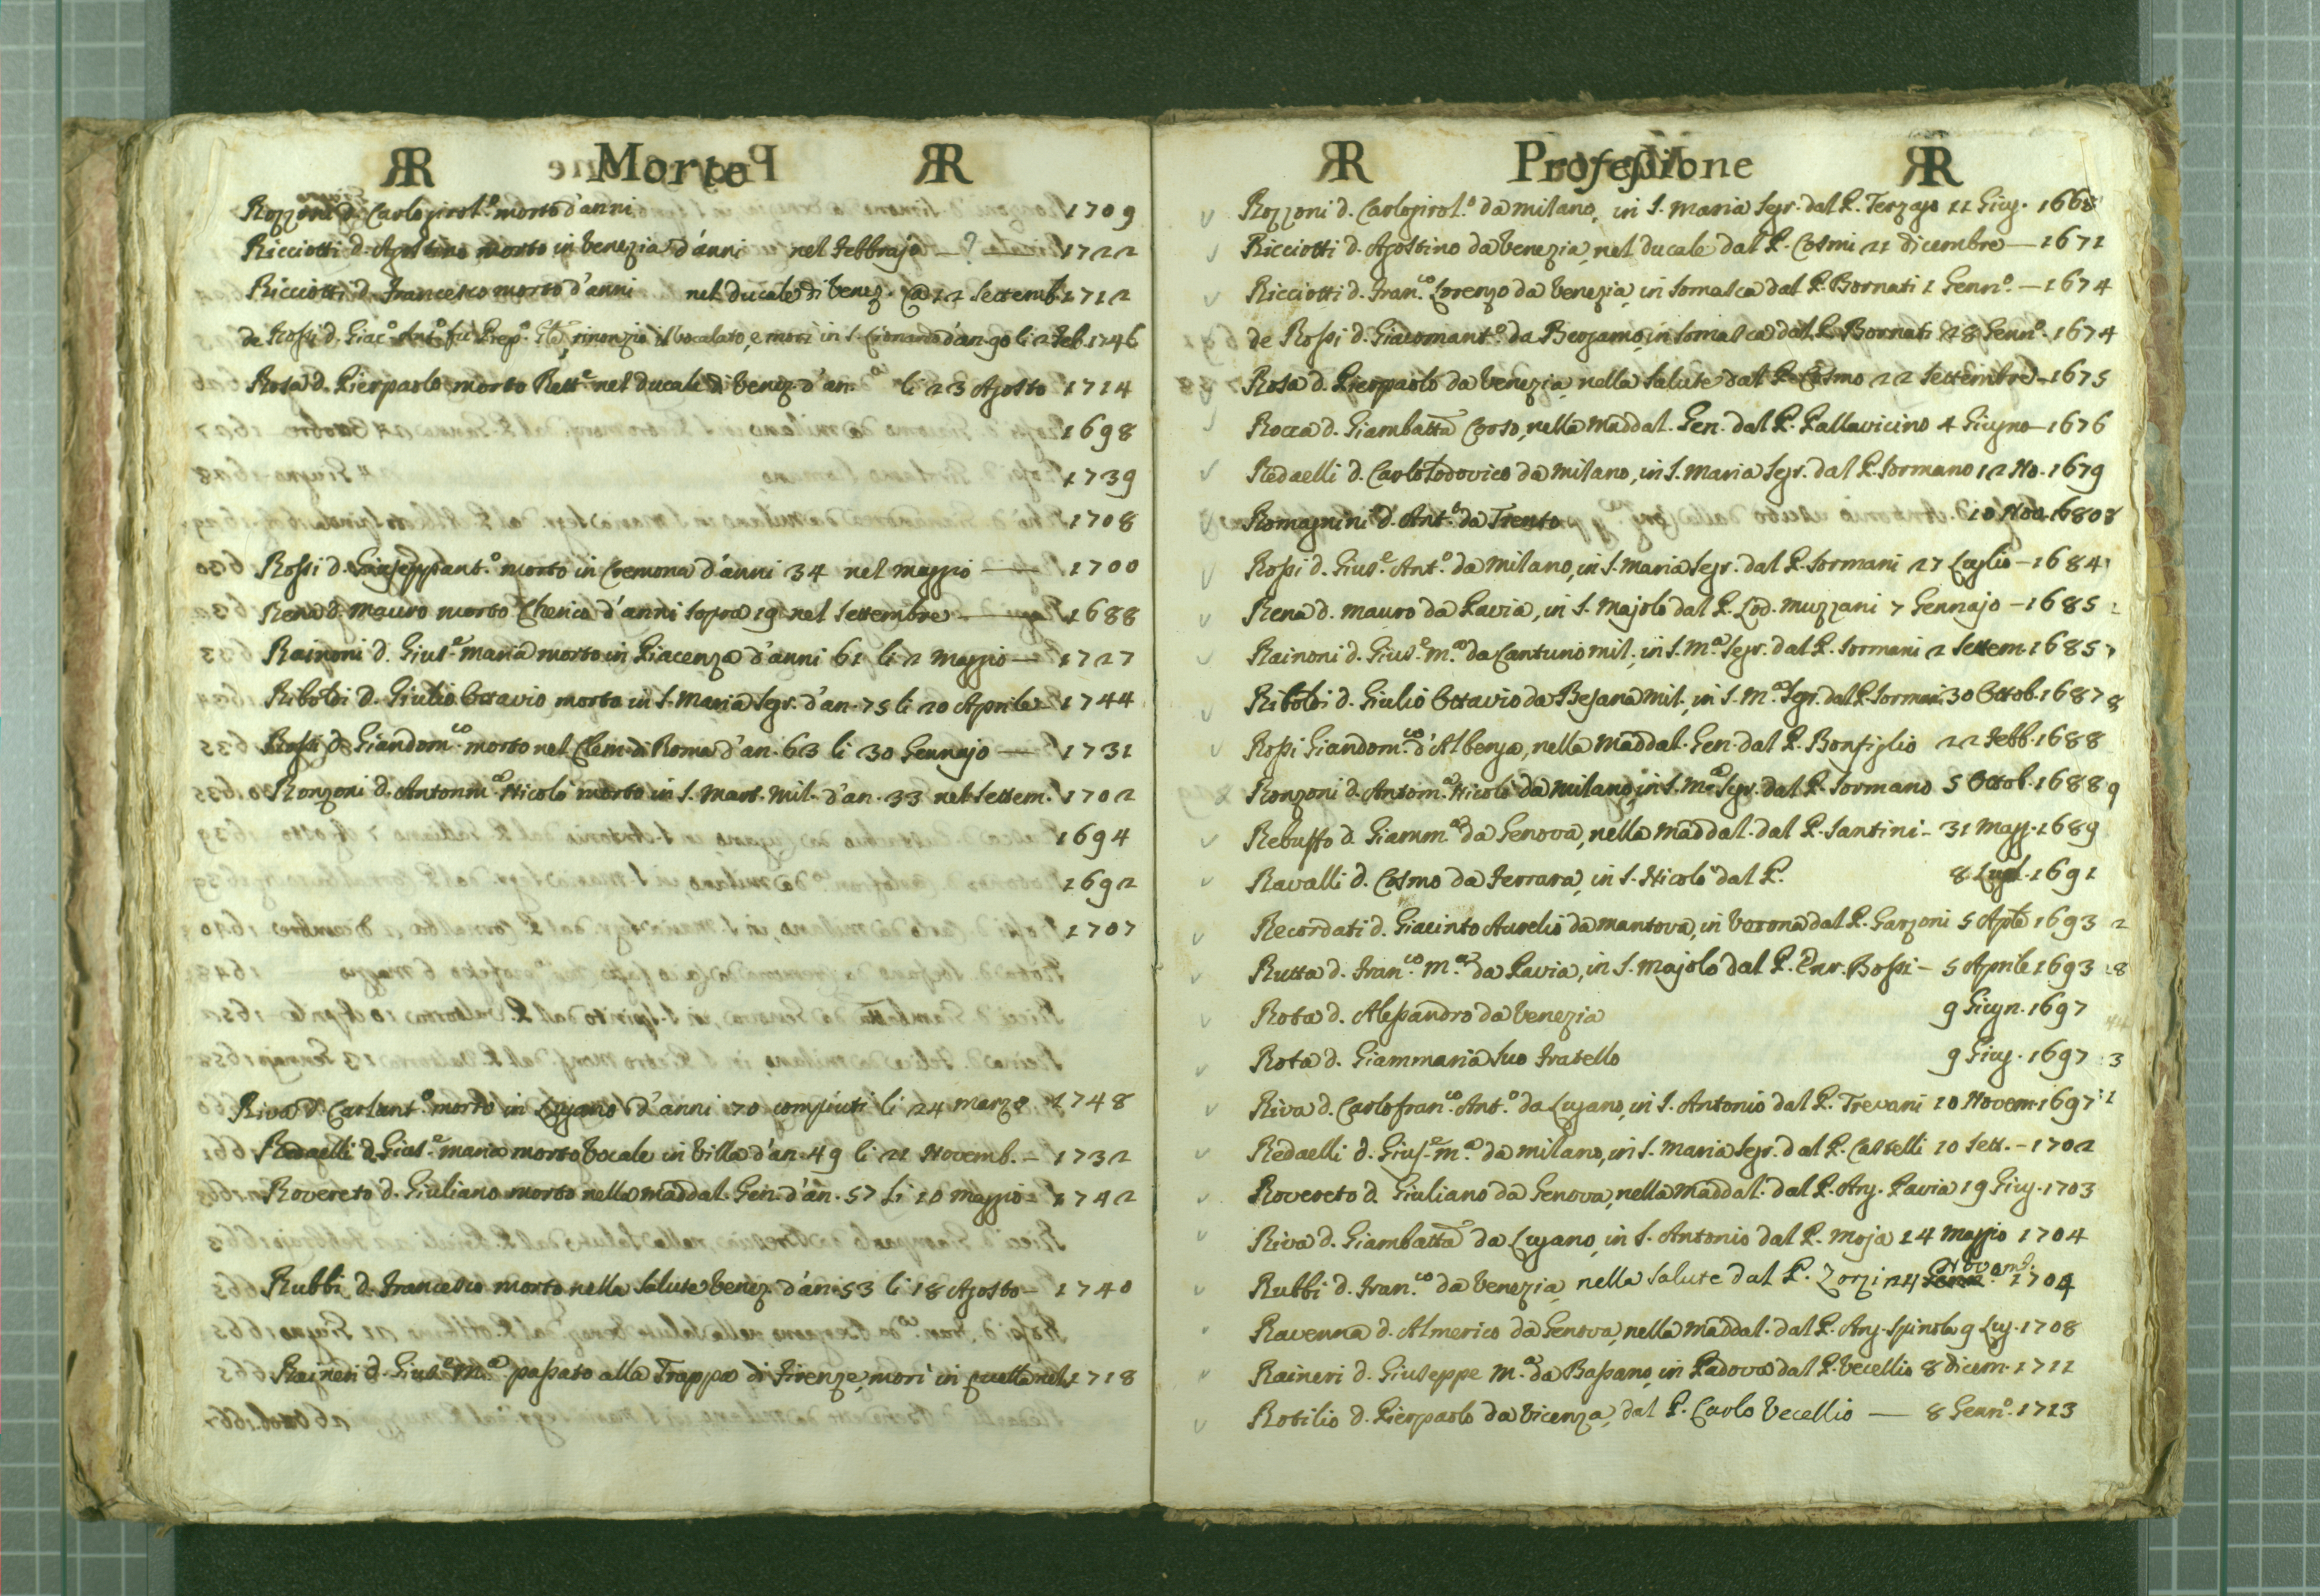 R Morto R
Rozzoni d. Carlogirol.º morto d'anni 1709
Ricciotti d. Agostino morto in Venezia d'anni nel Febbrajo — ? — 1722
Ricciotti d. Francesco morto d'anni nel ducale di Venez. @ 22 Settemb. 1712
de Rossi d. Giac.º Ant.º fu Prep.º rinonziò il Vocalato, e morì in S. Lionardo d'an. 90 li 2 Feb. 1746
Rosa d. Pierpaolo morto Rett.e nel ducale di Venez. d'an. li 23 Agosto 1714
1698
1739
1708
Rossi d. Giuseppant.º morto in Cremona d'anni 34 nel Maggio — 1700
Rena d. Mauro morto Cherico d'anni sopra 19 nel Settembre — 1688
Rainoni d. Gius.e Maria morto in Piacenza d'anni 61 li 2 Maggio — 1727
Riboldi d. Giulio Ottavio morto in S. Maria Segr. d'an. 75 li 20 Aprile 1744
Rossi d. Giandom.co morto nel Clem. di Roma d'an. 63 li 30 Gennajo — 1731
Ronzoni d. Antonm.a Nicolò morto in S. Mart. Mil. d'an. 33 nel Settem. 1702
1694
1692
1707
Riva d. Carlant.º morto in Lugano d'anni 70 compiuti li 24 Marzo 1748
Redaelli d. Gius.e Maria morto Vocale in Villa d'an. 49 li 21 Novemb. — 1732
Rovereto d. Giuliano morto nella Maddal. Gen. d'an. 57 li 10 Maggio — 1742
Rubbi d. Francesco morto nella Salute Venez. d'an. 53 li 18 Agosto — 1740
Raineri d. Gius.e M.a passato alla Trappa di Firenze, morì in quella nel 1718
R Professione R
Rozzoni d. Carlogirol.º da Milano, in S. Maria Segr. dal P. Terzago 11 Giug. 1668
Ricciotti d. Agostino da Venezia, nel ducale dal P. Cosmi 21 dicembre — 1671
Ricciotti d. Fran.co Lorenzo da Venezia, in Somasca dal P. Bornati 1 Genn.º — 1674
de Rossi d. Giacomant.º da Bergamo, in Somasca dal P. Bornati 28 Genn.º 1674
Rosa d. Pierpaolo da Venezia, nella Salute dal P. Cosmo 22 Settembre — 1675
Rocca d. Giambatta Corso, nella Maddal. Gen. dal P. Pallavicino 4 Giugno — 1676
Redaelli d. Carlo Lodovico da Milano, in S. Maria Segr. dal P. Sormano 12 No. 1679
Romagnini d. Ant.º da Trento 10 Nov. 1680
Rossi d. Gius.e Ant.º da Milano, in S. Maria Segr. dal P. Sormani 27 Luglio — 1684
Rena d. Mauro da Pavia, in S. Majolo dal P. Lod. Muzzani 7 Gennajo — 1685
Rainoni d. Gius.e M.a da Cantuno Mil., in S. M.a Segr. dal P. Sormani 2 Settem. 1685
Riboldi d. Giulio Ottavio da Besana Mil., in S. M.a Segr. dal P. Sormani 30 Ottob. 1687
Rossi Giandom.co d'Albenga, nella Maddal. Gen. dal P. Bonfiglio 22 Febb. 1688
Ronzoni d. Antonm.a Nicolò da Milano, in S. M.a Segr. dal P. Sormano 5 Ottob. 1688
Rebuffo d. Giamm.a da Genova, nella Maddal. dal P. Santini — 31 Magg. 1689
Ravalli d. Cosmo da Ferrara, in S. Nicolò dal P. 8 Lugl. 1691
Recordati d. Giacinto Aurelio da Mantova, in Verona dal P. Garzoni 5 Aple 1693
Rutta d. Fran.co M.a da Pavia, in S. Majolo dal P. Enr. Bossi — 5 Aprile 1693
Rota d. Alessandro da Venezia 9 Giugn. 1697
Rota d. Giammaria suo Fratello 9 Giug. 1697
Riva d. Carlofran.co Ant.º da Lugano, in S. Antonio dal P. Trevani 10 Novem. 1697
Redaelli d. Gius.e M.a da Milano, in S. Maria Segr. dal P. Castelli 10 Sett. — 1702
Rovereto d. Giuliano da Genova, nella Maddal. dal P. Ang. Pavia 19 Giug. 1703
Riva d. Giambatta da Lugano, in S. Antonio dal P. Moja 14 Maggio 1704
Rubbi d. Fran.co da Venezia, nella Salute dal P. Zorzi 24 Novemb. 1704
Ravenna d. Almerico da Genova, nella Maddal. dal P. Ang. Spinola 9 Lug. 1708
Raineri d. Giuseppe M.a da Bassano, in Padova dal P. Vecellio 8 dicem. 1711
Rotilio d. Pierpaolo da Vicenza, dal P. Carlo Vecellio — 8 Genn.º 1713